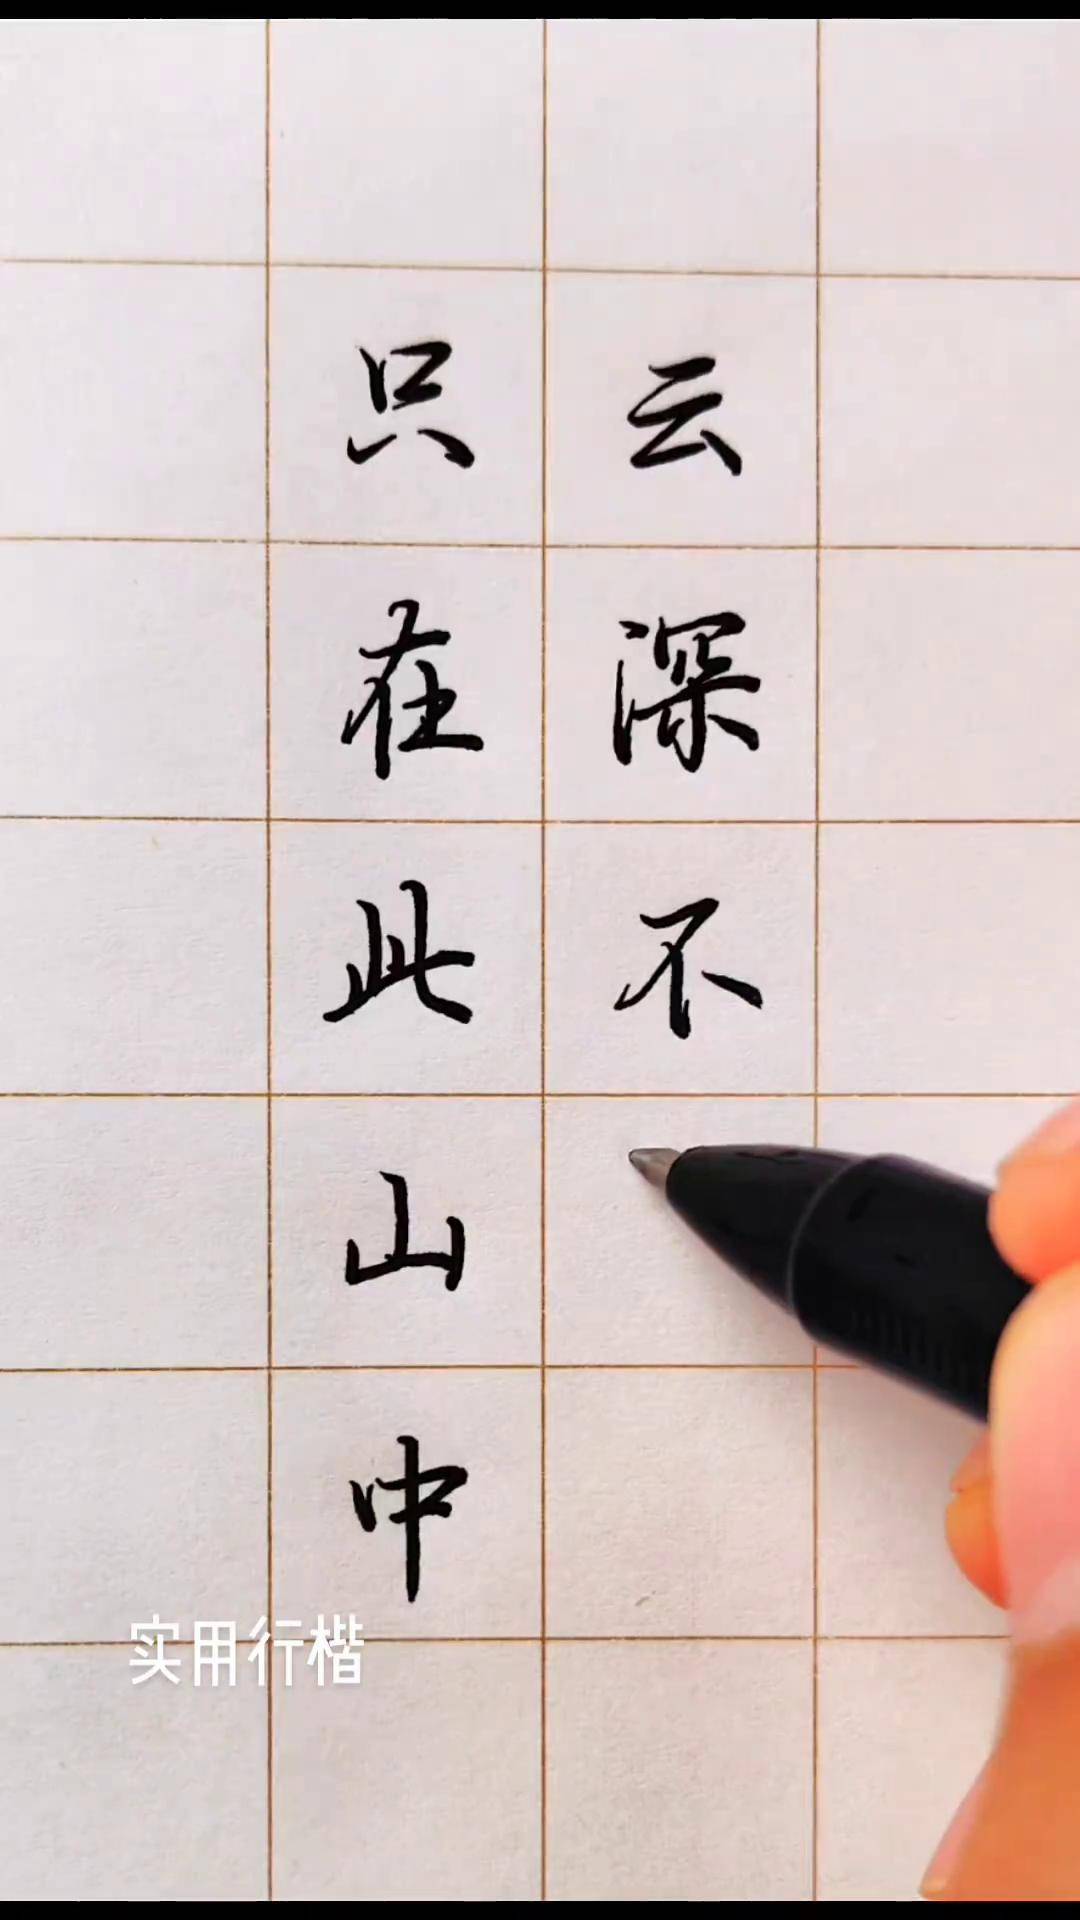 只在此山中
云深不
实用行楷